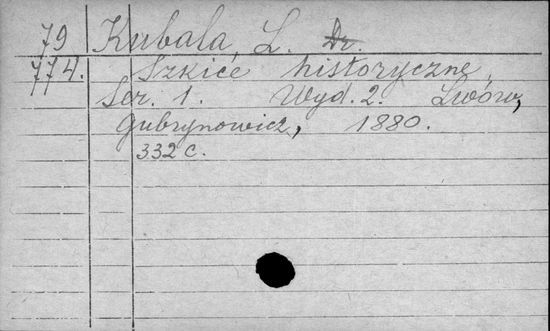 79 Kubala, L. Dr.
774. Szkice historyczne,
Ser. 1. Wyd. 2. Lwów,
Gubrynowicz, 1880.
332 c.